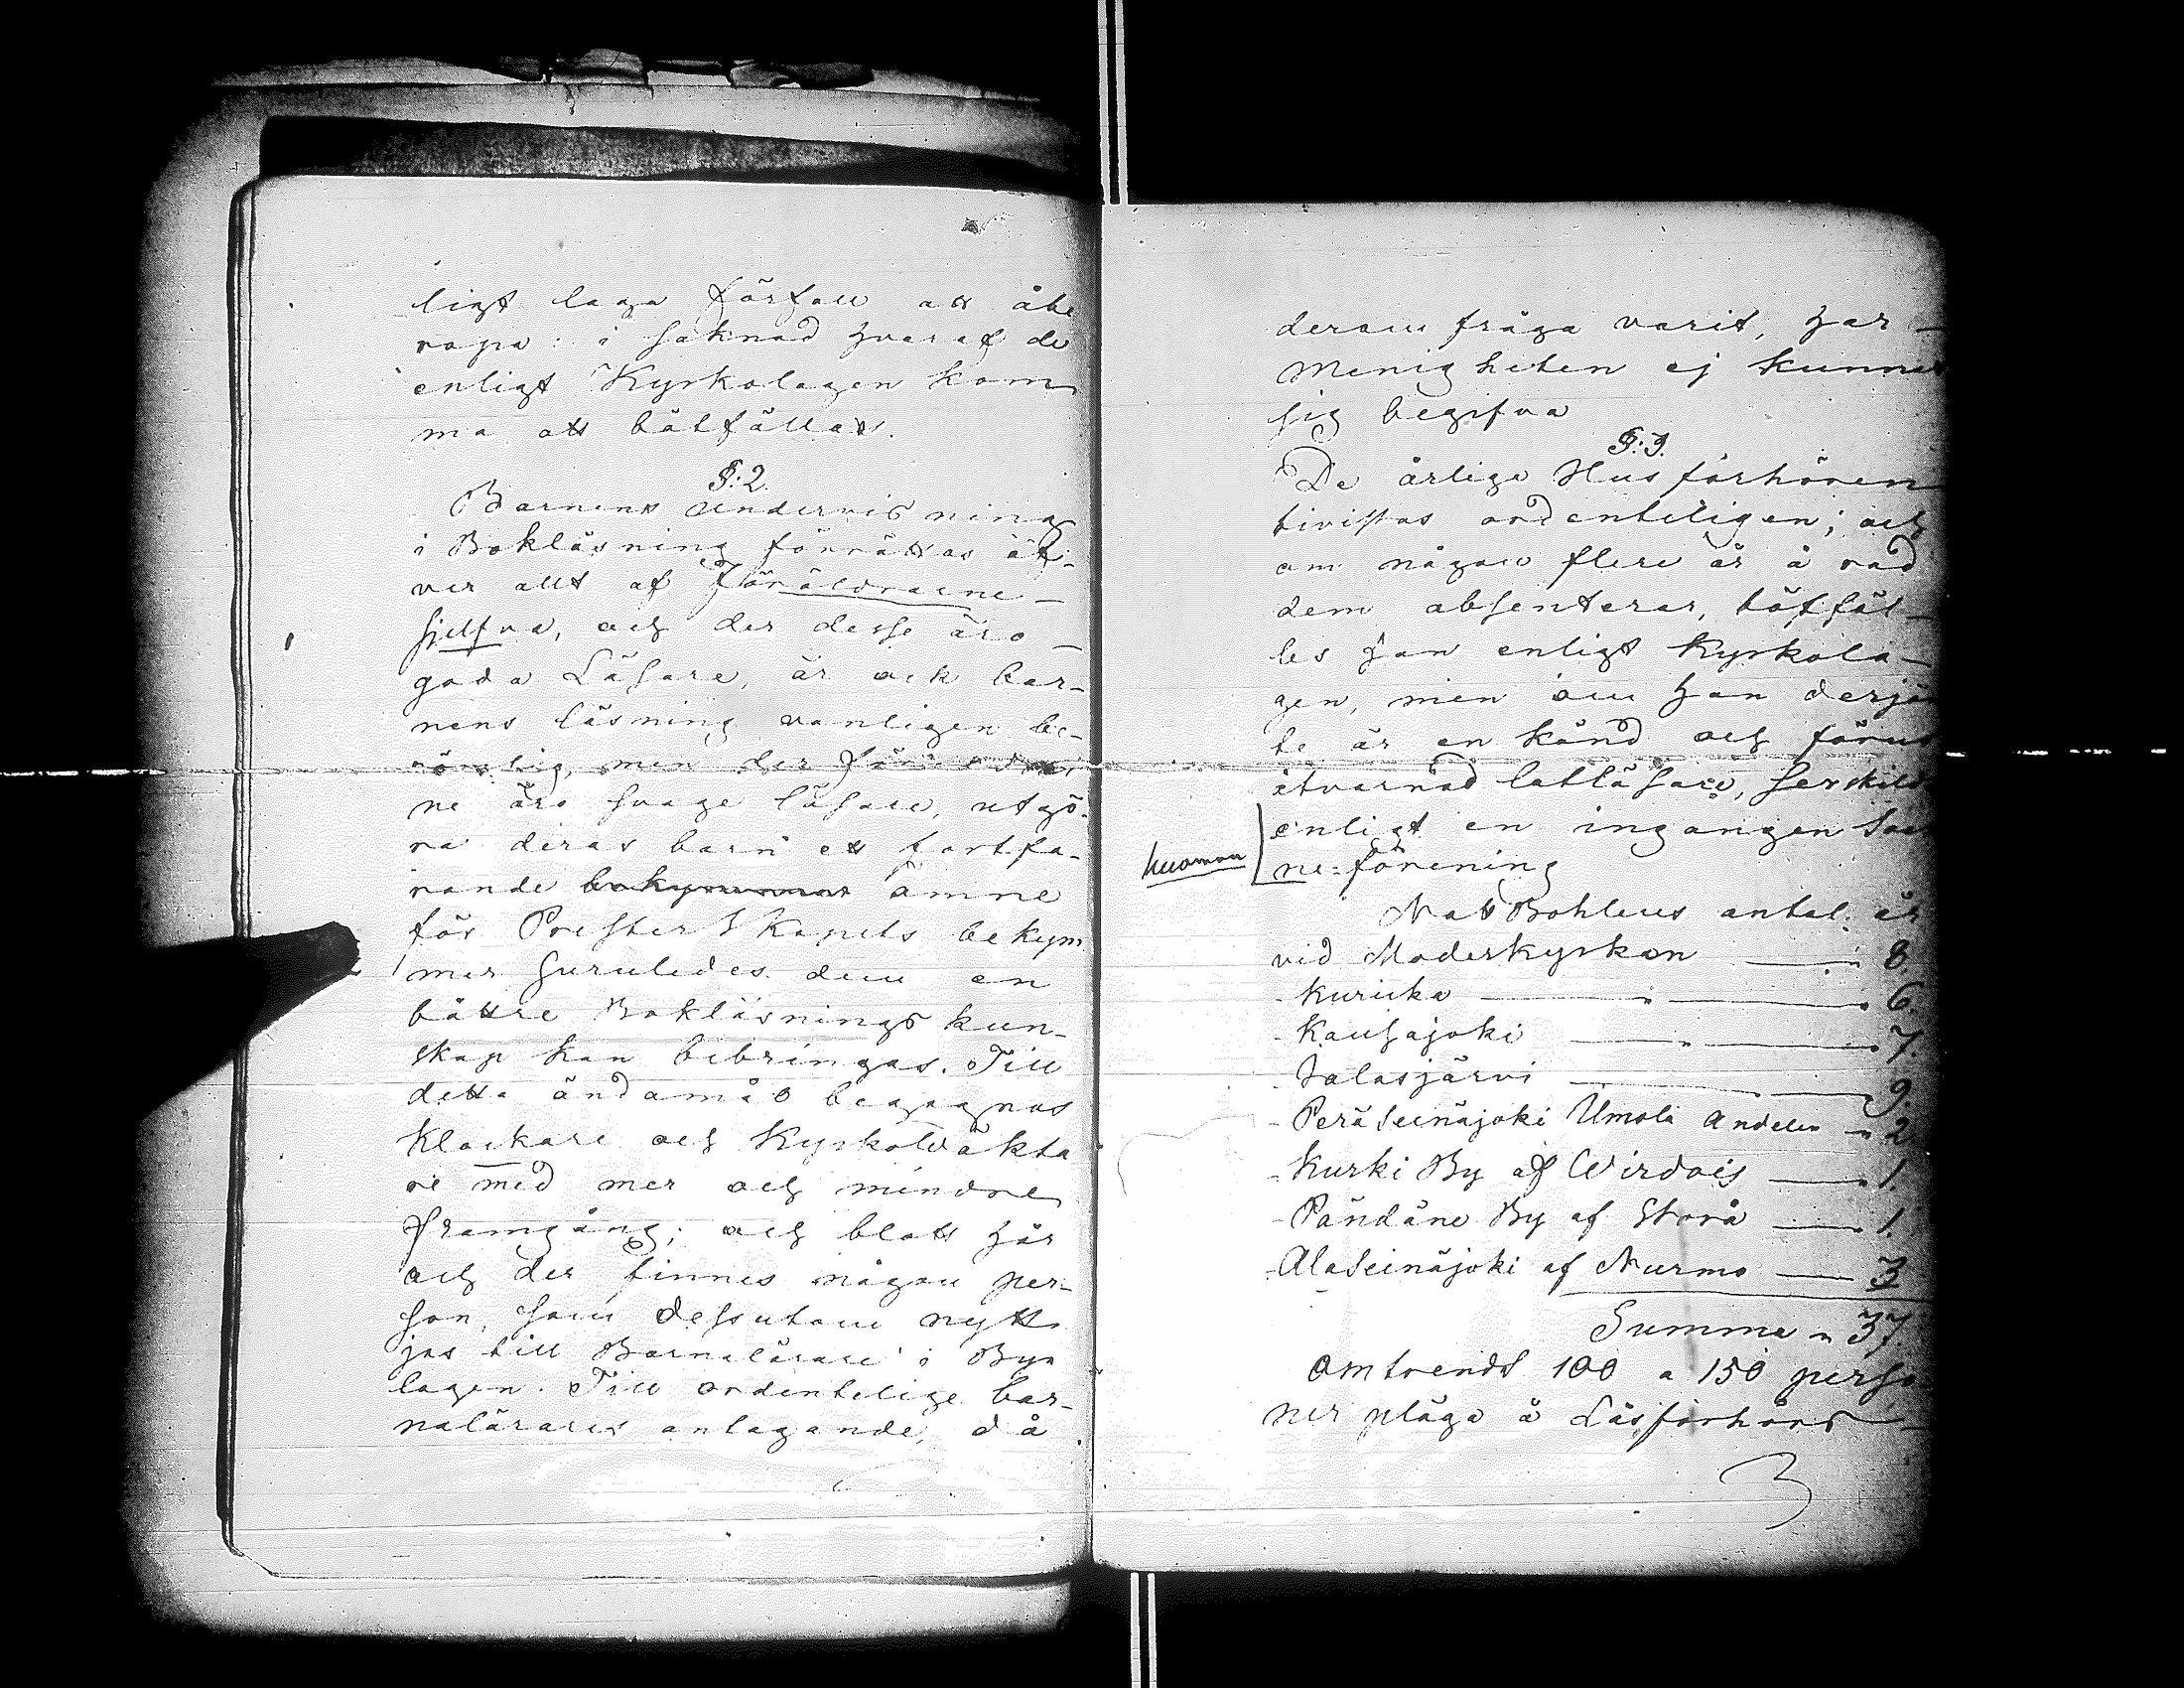 ligt laga förfall att åbe
ropa: i saknad hvaraf de
enligt Kyrkolagen kom
ma att bötfällas.
§: 2.
Barnens undervisning
i Bokläsning förrättas öf-
ver allt af Föräldrarne
sjelfva, och der desse äro
goda Läsare, är ock bar-
nens läsning vanligen be-
römlig, men der Föräldrar
ne äro svage läsare, utgö-
ra deras barn ett fortfa-
rande bekymmer ämne
för Presterskapets bekym
mer huruledes dem en
bättre Bokläsnings kun-
skap kan bibringas. Till
detta ändamål begagnas
Klockare och Kyrkoväkta
re med mer och mindre
framgång; och blott här
och der finnes någon per-
son, som dessutom nytt
jas till Barnalärare i Bya
lagen. Till ordentelige bar-
nalärares antagande, då
derom fråga varit, har
Menigheten ej kunnat
sig begifva
§: 3.
De årlige Husförhören
bivistas ordenteligen; och
om någon flere år å rad
dem absenterar, bötfäl-
les han enligt Kyrkola-
gen, men om han derjä
te är en känd och förut
åtvarnad lattläsare, serskildt
enligt en ingången Soc
ne-förening
huoman
Nattvards antal är
vid Moderkyrkan 8.
- Kurikka 6.
- Kauhajoki 7.
- Jalasjärvi 9.
- Peräseinäjoki Umola Andelen 2
- Kurki By af Wirdois 1.
- Påndäne By af Storå 1.
- Alaseinäjoki af Nurmo 3
Summa 37.
Omtrendt 100 a 150 perso
ner pläga å Läsförhörs